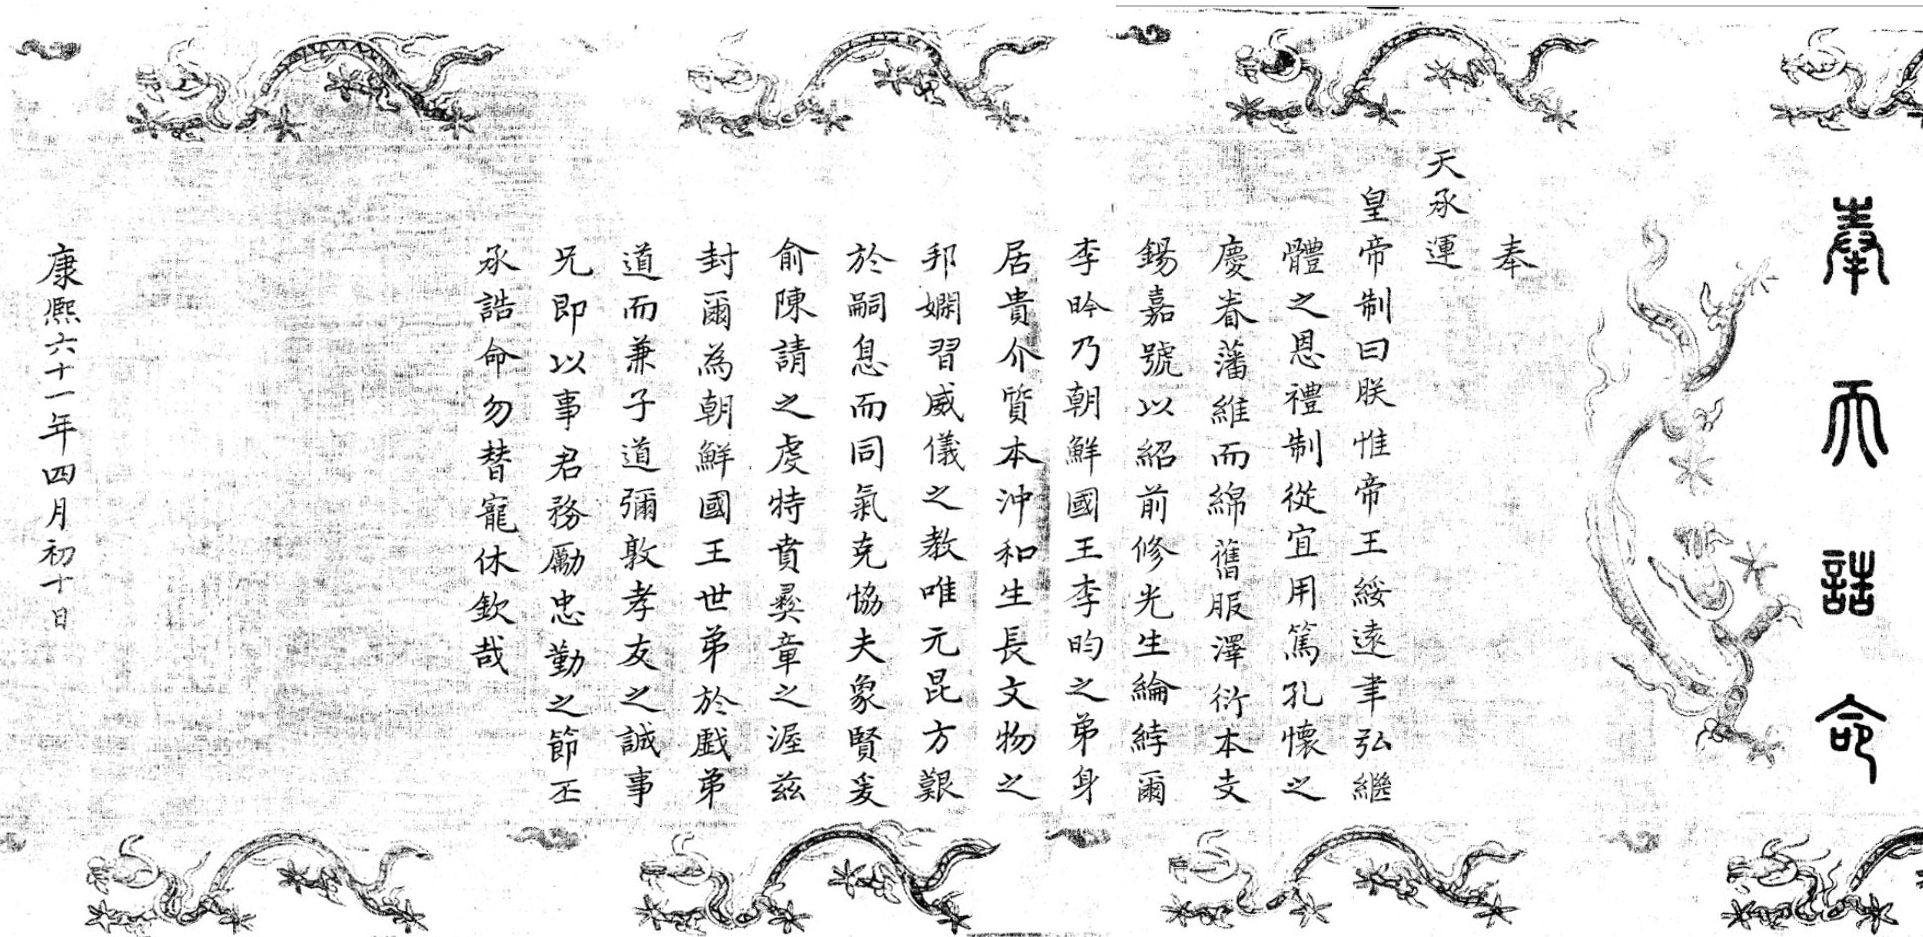 奉天誥命
奉
天承運
皇帝制曰朕惟帝王綏遠聿弘繼
體之恩禮制從宜用篤孔懷之
慶眷藩維而綿舊服澤衍本支
錫嘉號以紹前修光生綸綍爾
李昑乃朝鮮國王李昀之弟身
居貴介質本沖和生長文物之
邦嫻習威儀之教唯元昆方艱
於嗣息而同氣克協夫象賢爰
俞陳請之虔特賁彝章之渥茲
封爾為朝鮮國王世弟於戲弟
道而兼子道彌敦孝友之誠事
兄即以事君務勵忠勤之節丕
承誥命勿替寵休欽哉
康熙六十一年四月初十日